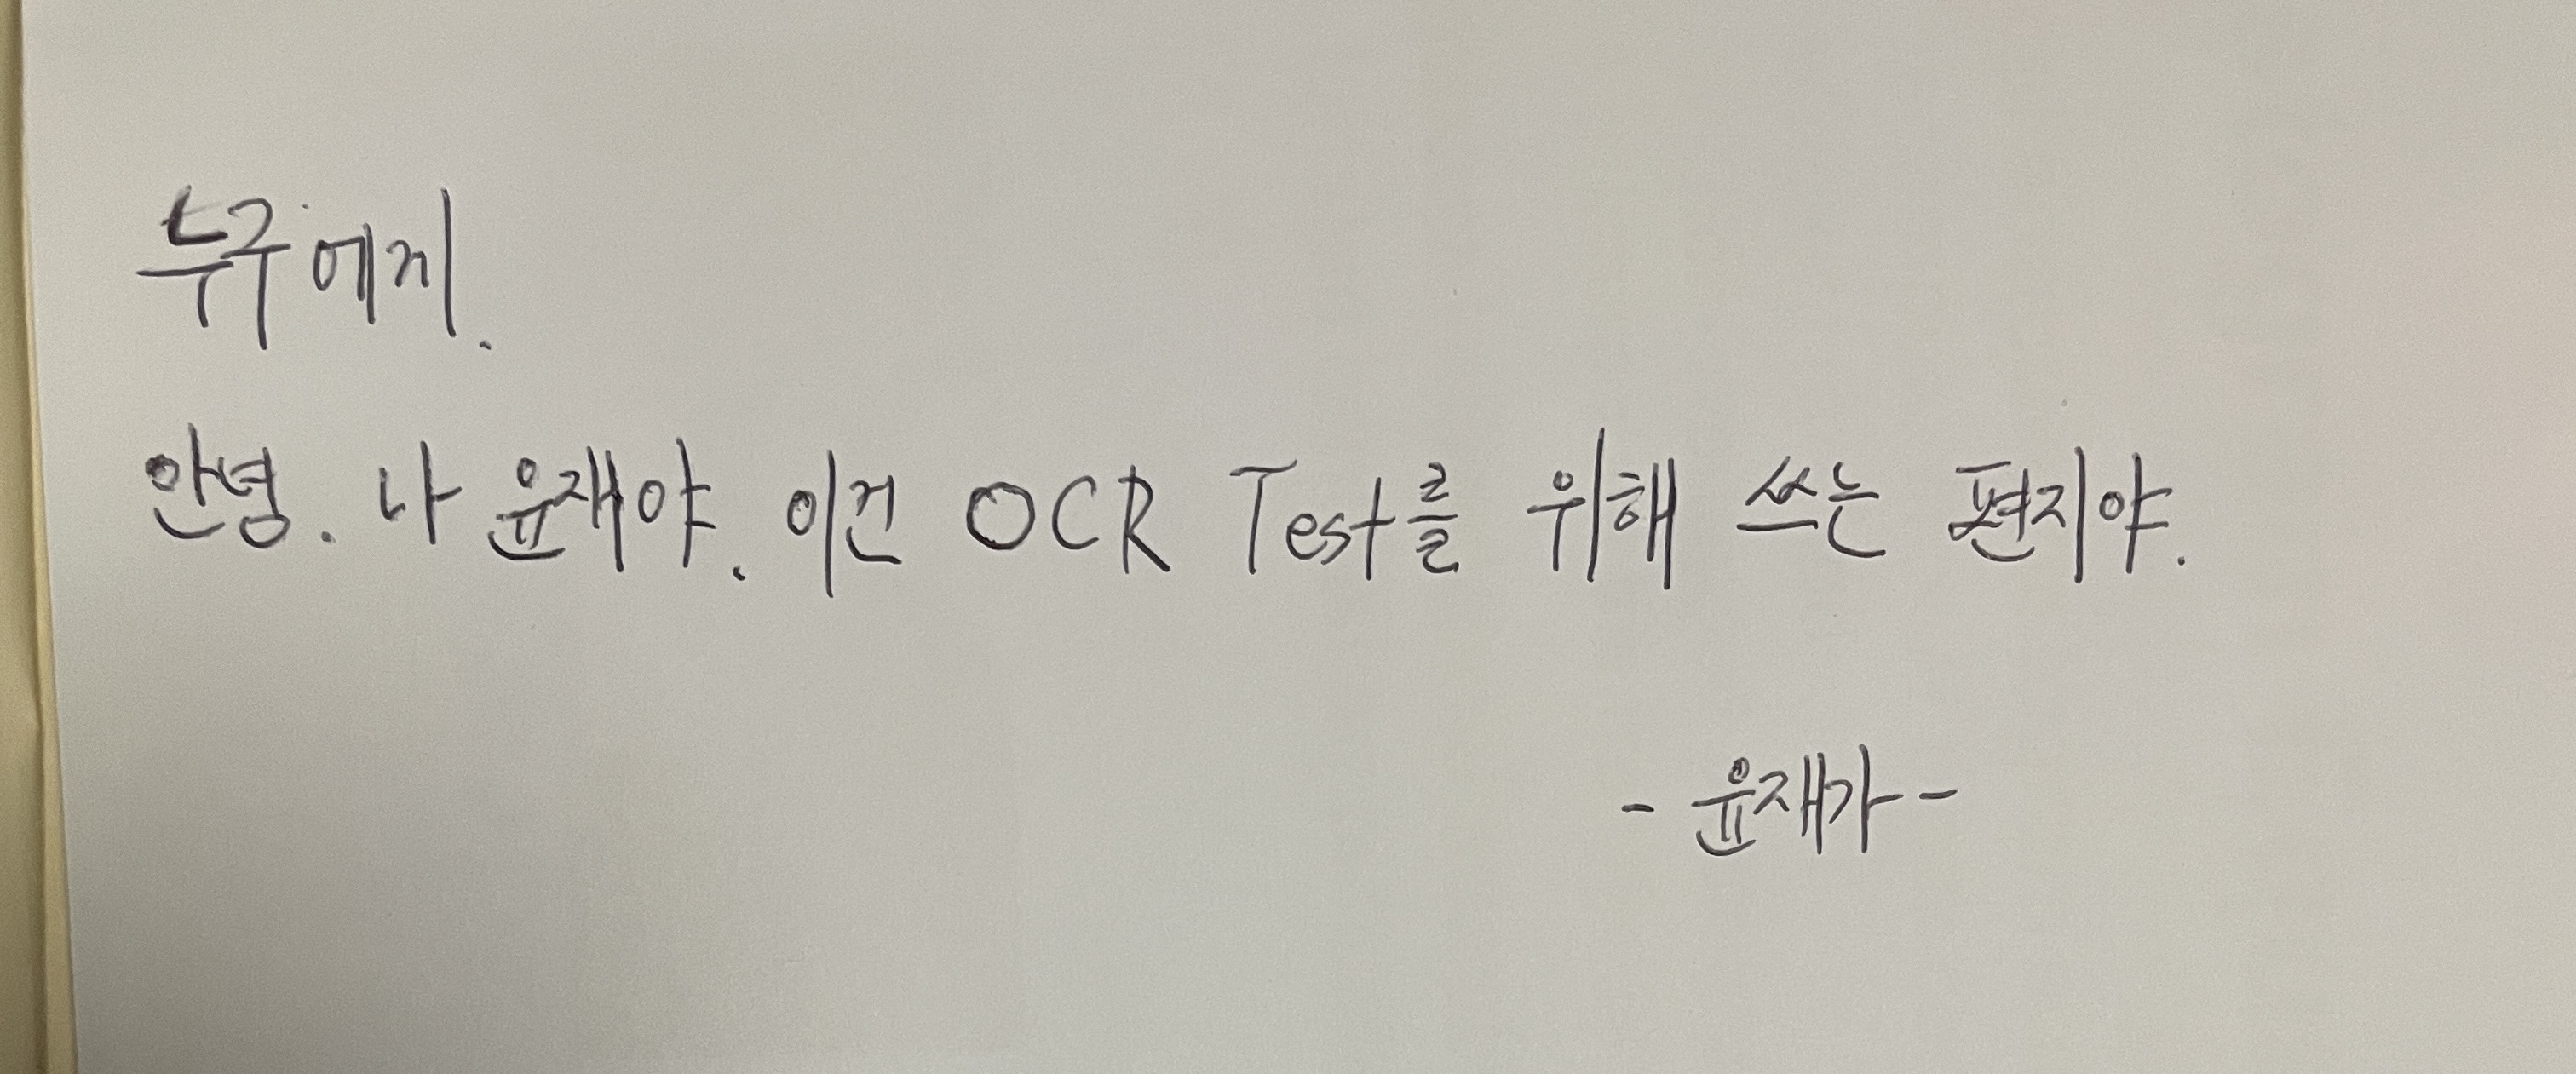 누구에게.
안녕. 나 윤재야. 이건 OCR Test를 위해 쓰는 편지야.
- 윤재가 -